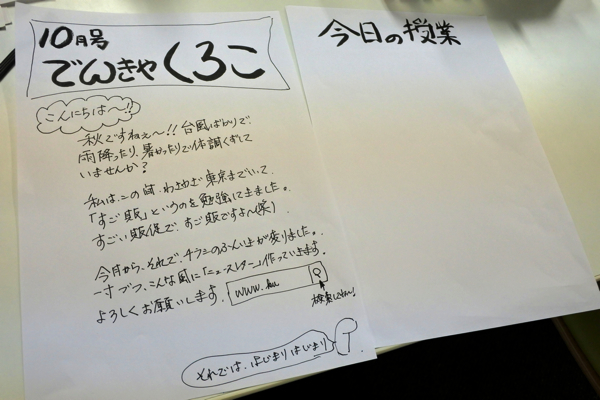 10月号
でんきやくろこ
こんにちは〜!!
秋ですねぇ〜!! 台風ばかりで、
雨降ったり、暑かったりで体調くずして
いませんか?
私は、この前、わざわざ東京までいって、
「すご販」というのを勉強して来ました。
すごい販促で、すご販ですよ〜(笑)
今月から、それで、チラシのふんいきが変りました。
一寸づつ、こんな風に「ニュースレター」作っていきます。
よろしくお願いします。
www.
それでは、はじまりはじまり
今日の授業